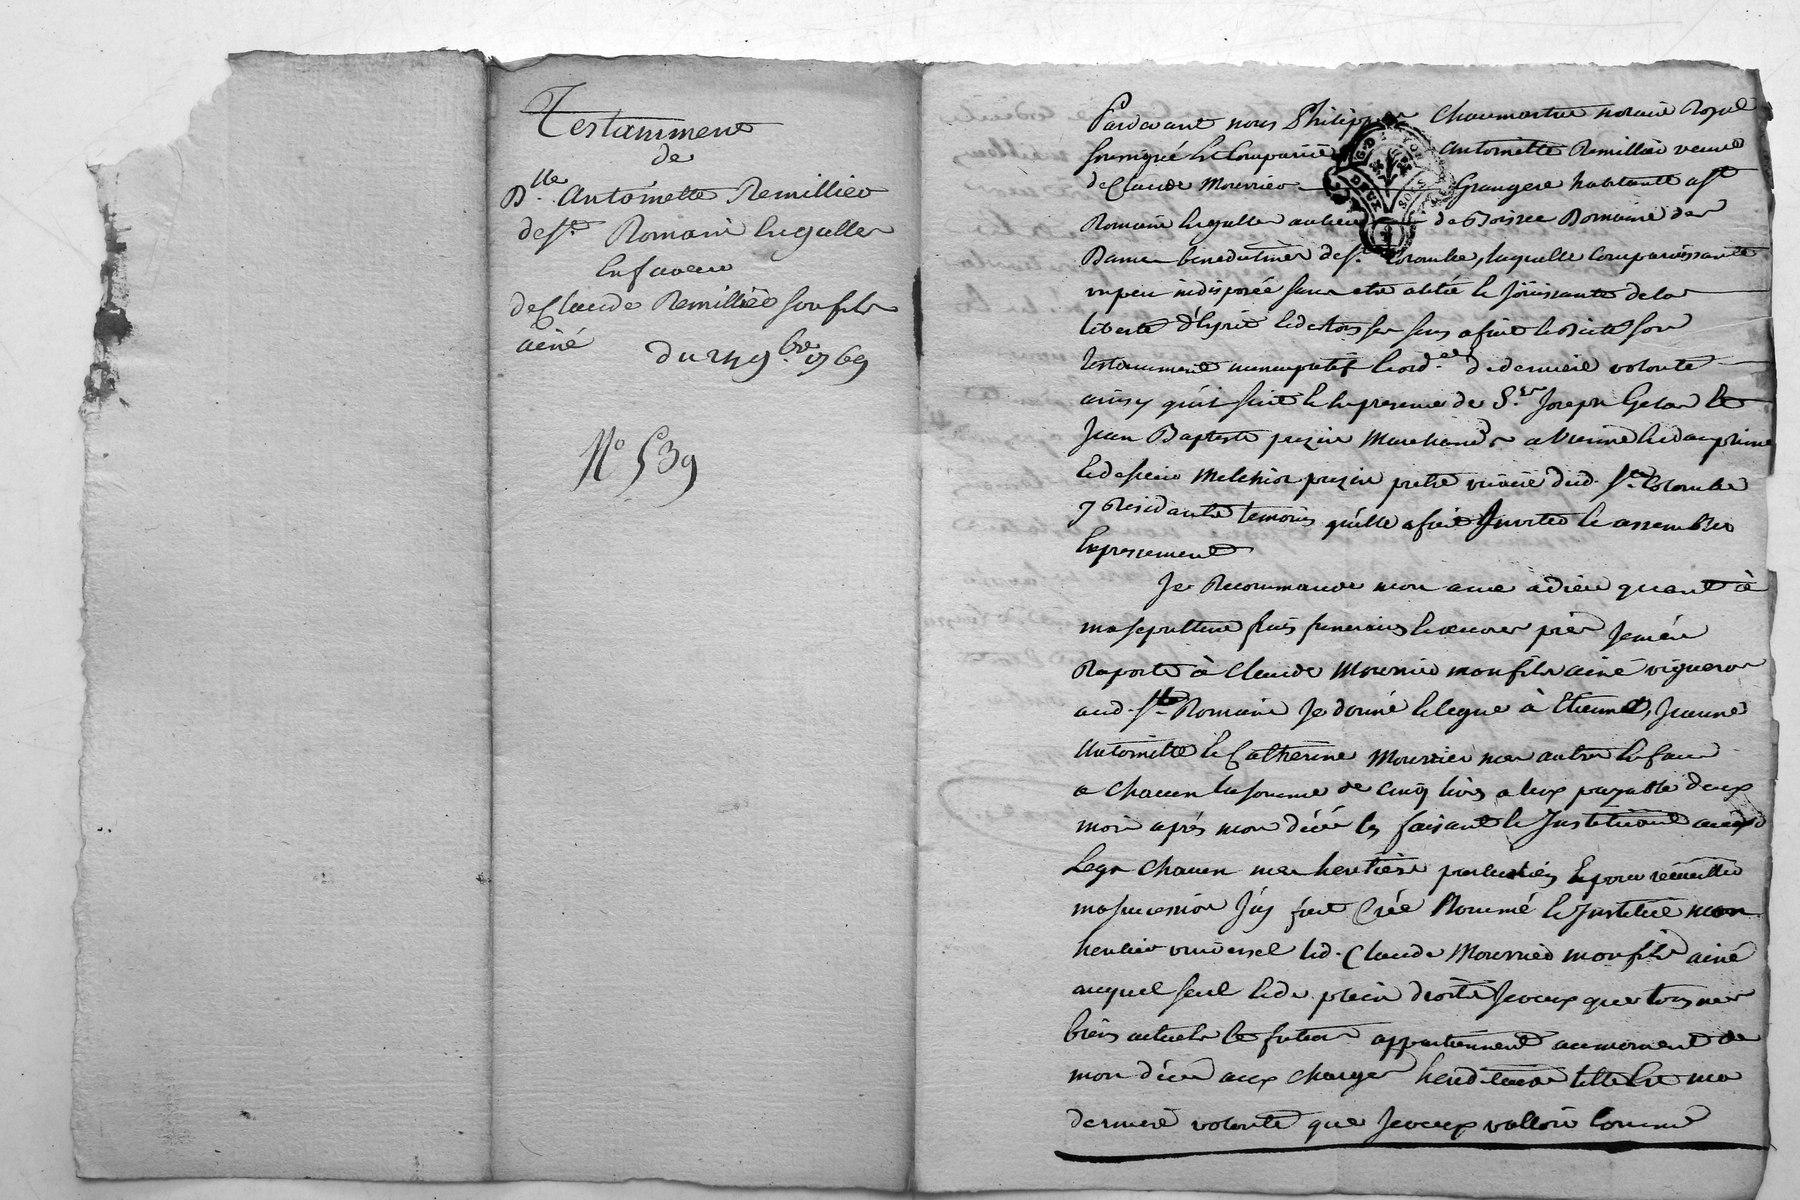 Testamment
de
Dlle Antoinette Remillier
de St Romain Engallen
En faveur
de Claude Remillier son fils
ainé
du 24 9bre 1769
No 539
Pardevant nous Philippe Chaumartin notaire Royal
soussigné Est Comparüe Antoinette Remillier veuve
de Claude Mourrier Grangere habitante a St
Romain Engallen au lieu de Boissee Domaine des
Dames benedictines de Ste Colombe, laquelle Comparoissante
un peu indisposée sans etre alitée et Jöuissante de la
liberté d'Esprit et de tous ses sens a fait et Dicté son
testamment nuncupatif et ord. de derniere volonté
ainsy quil suit En presence de Sr Joseph Gelas et
Jean Baptiste prezin Marchands a Vienne En dauphiné
et de sieur Melchior prezin pretre vicaire dud. Ste Colombe
y Residants temoins qu'elle a fait Inviter et assembler
Expressement
Je Recommande mon ame a dieu quant à
ma sepulture frais funeraires et oeuvres pies Je m'en
Raporte à Claude Mourrier mon fils ainé vigneron
aud. St Romain Je donne et legue à Etienne, Jeanne
Antoinette et Catherine Mourrier mes autres Enfans
a chacun la somme de Cinq livres a Eux payable deux
mois aprés mon décés les faisant et Instituant avec
Legs chacun mes heritiers particuliers Et pour recueillir
ma succession J'ay fait Créé Nommé et Institué mon
heritier universel led. Claude Mourrier mon fils ainé
auquel seul et de plein droit Je veux que tous mes
biens actuels et futurs appartiennent au moment de
mon décés aux charges hereditaires telle Est ma
derniere volonté que Je veux valloir Comme